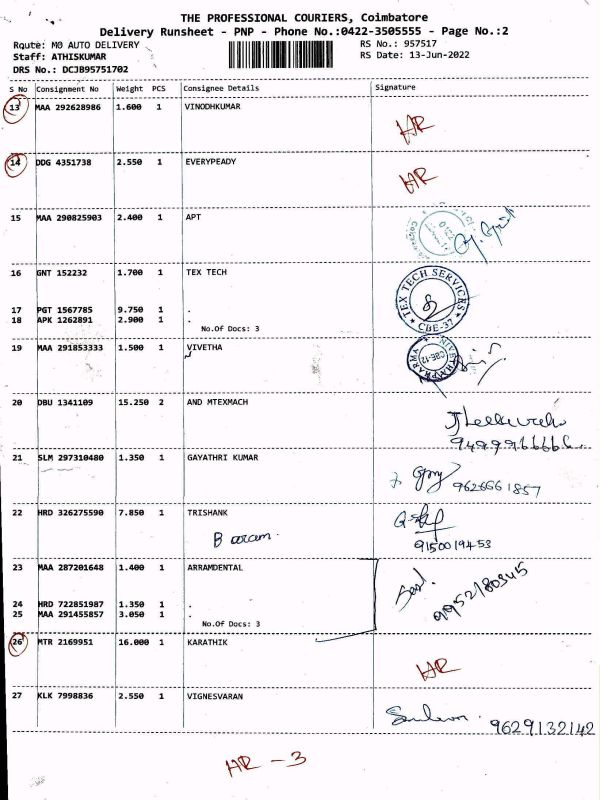 THE PROFESSIONAL COURIERS, Coimbatore
Delivery Runsheet - PNP - Phone No.:0422-3505555 - Page No.:2
Route: M0 AUTO DELIVERY RS No.: 957517
Staff: ATHISKUMAR RS Date: 13-Jun-2022
DRS No.: DCJB95751702
S No Consignment No Weight PCS Consignee Details Signature
13 MAA 292628986 1.600 1 VINODHKUMAR
HR
14 DDG 4351738 2.550 1 EVERYPEADY
HR
15 MAA 290825903 2.400 1 APT
16 GNT 152232 1.700 1 TEX TECH
TEX TECH SERVICES
CBE-37
17 PGT 1567785 9.750 1 .
18 APK 1262891 2.900 1 .
No.Of Docs: 3
19 MAA 291853333 1.500 1 VIVETHA
CBE-12
20 DBU 1341109 15.250 2 AND MTEXMACH
21 SLM 297310480 1.350 1 GAYATHRI KUMAR
9626661857
22 HRD 326275590 7.850 1 TRISHANK
B aram.
9150019453
23 MAA 287201648 1.400 1 ARRAMDENTAL
9952180345
24 HRD 722851987 1.350 1 .
25 MAA 291455857 3.050 1 .
No.Of Docs: 3
26 MTR 2169951 16.000 1 KARATHIK
HR
27 KLK 7998836 2.550 1 VIGNESVARAN
9629132142
HR - 3